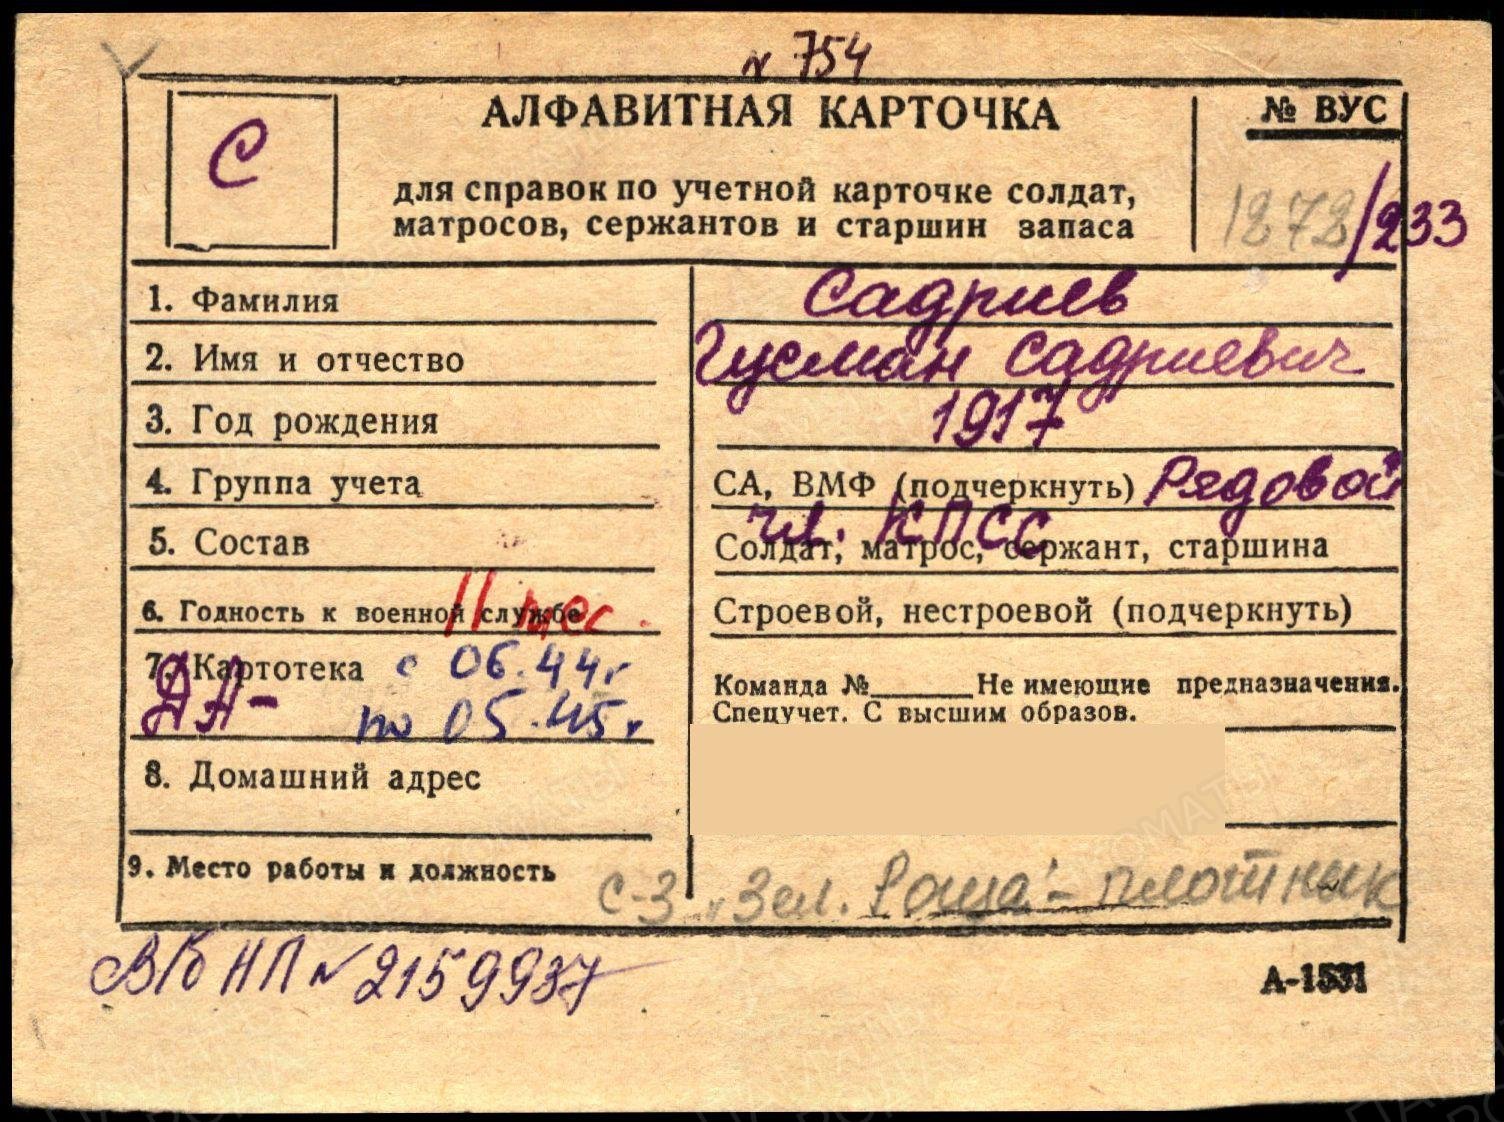 № 754
АЛФАВИТНАЯ КАРТОЧКА
№ ВУС
С
для справок по учетной карточке солдат,
матросов, сержантов и старшин запаса
1272/233
1. Фамилия Садриев
2. Имя и отчество Гусман Садриевич
3. Год рождения 1917
4. Группа учета СА, ВМФ (подчеркнуть) Рядовой
чл. КПСС
5. Состав Солдат, матрос, сержант, старшина
11 мес.
6. Годность к военной службе Строевой, нестроевой (подчеркнуть)
7. Картотека с 06.44г Команда №______Не имеющие предназначения.
ДА- по 05.45г. Спецучет. С высшим образов.
8. Домашний адрес
9. Место работы и должность с-з "Зел. Роща" - плотник
В/б НП № 2159937
А-1531